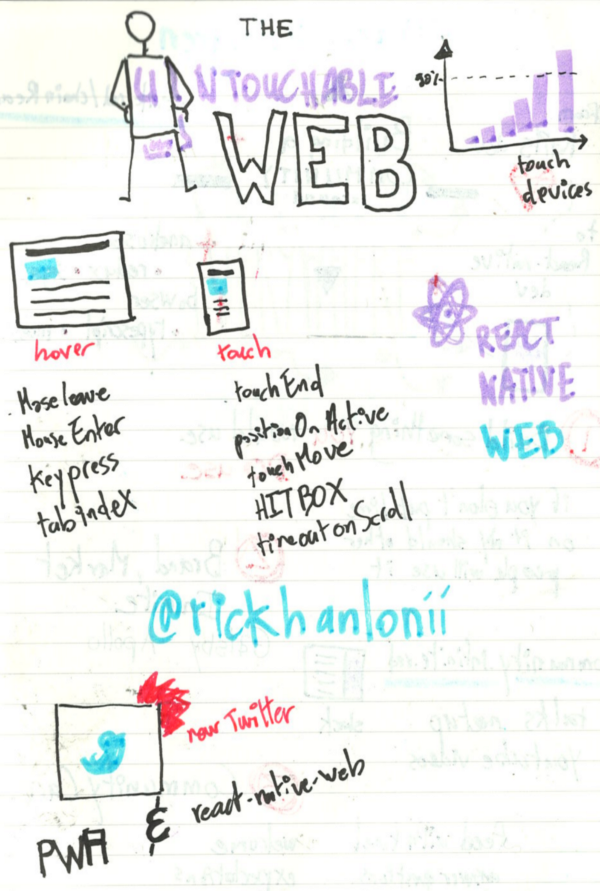 THE
UNTOUCHABLE
WEB
90%
touch
devices
hover
touch
Moseleave
MouseEnter
Keypress
tabindeX
touchEnd
positionOnActive
touchMove
HITBOX
timeoutonScroll
REACT
NATIVE
WEB
@rickhanlonii
new Twitter
react-native-web
&
PWA